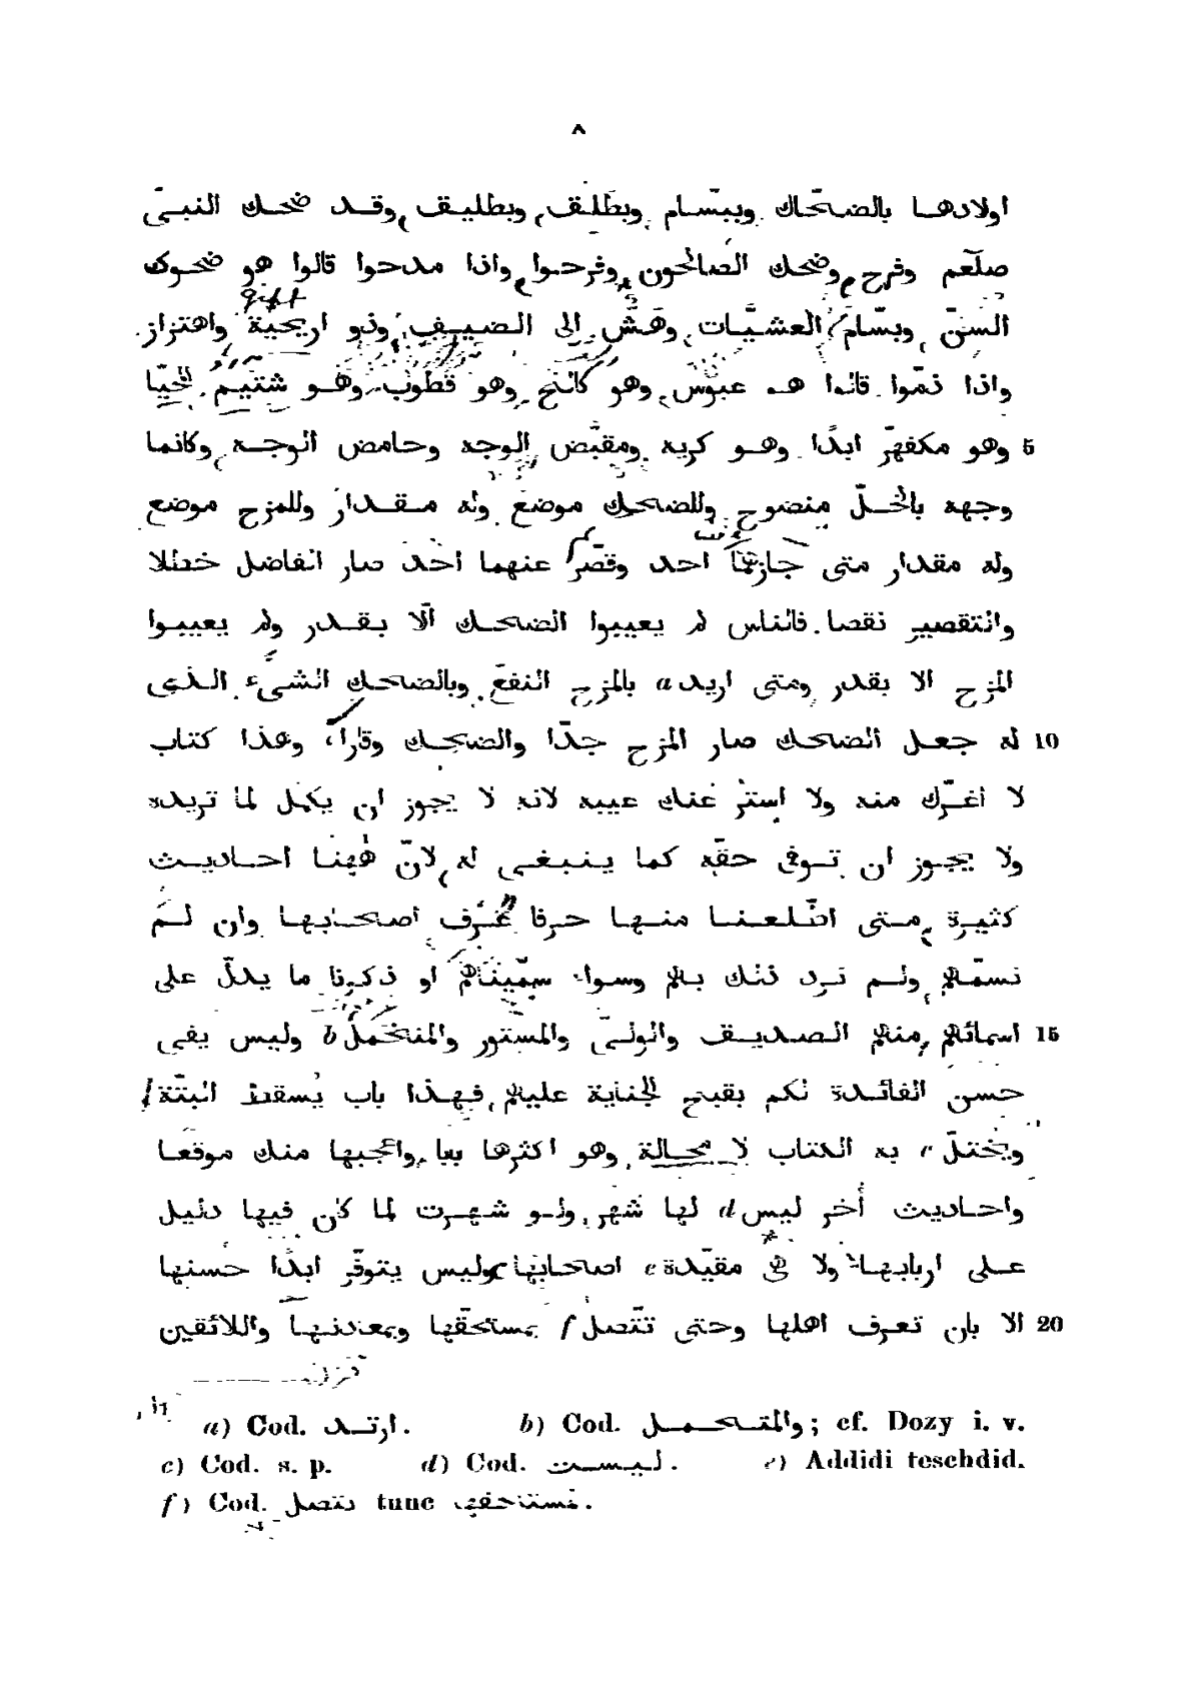 ٨
اولادها بالضحّاك وببسّام وبطَلْق وبطليق وقد ضحك النبىّ
صلّعم وفرح وضحك الصالحون وفرحوا واذا مدحوا قالوا هو ضحوك
السنّ وبسّام العشيّات وهَشّ الى الضيف وذو اريحيّة واهتزاز
واذا ذمّوا قالوا هو عبوس وهو كالح وهو قطوب وهو شتيم المحيّا
5 وهو مكفهرّ ابدًا وهو كريه ومقبّض الوجه وحامض الوجه وكانما
وجهه بالخلّ منضوح وللضحك موضع وله مقدار وللمزح موضع
وله مقدار متى جازهما احد وقصّر عنهما احد صار الفاضل خطلا
والتقصير نقصا فالناس لم يعيبوا الضحك الّا بقدر ولم يعيبوا
المزح الا بقدر ومتى اريد a بالمزح النفع وبالضحك الشىء الذى
10 له جعل الضحك صار المزح جدّا والضحك وقارا وهذا كتاب
لا اغرّك منه ولا استر عنك عيبه لانه لا يجوز ان يكمل لما تريده
ولا يجوز ان توفى حقّه كما ينبغى له لانّ هٰهنا احاديث
كثيرة متى اطّلعنا منها حرفا عُرف اصحابها وان لم
نسمّهم ولم نرد ذلك بهم وسواء سمّيناهم او ذكرنا ما يدلّ على
15 اسمائهم منهم الصديق والولىّ والمستور والمتجمّل b وليس يفى
حسن الفائدة لكم بقبح الجناية عليهم فهذا باب يُسقط البتّة
ويختلّ c به الكتاب لا محالة وهو اكثرها بابا واعجبها منك موقعا
واحاديث أُخر ليس d لها شهر ولو شهرت لما كان فيها دليل
على اربابها ولا هى مقيّدة e اصحابها وليس يتوفّر ابدًا حسنها
20 الا بان تعرف اهلها وحتى تتّصل f بمستحقّها وبمعادنها واللائقين
a) Cod. ارتد. b) Cod. والمتحمل; cf. Dozy i. v.
c) Cod. s. p. d) Cod. ليست. e) Addidi teschdid.
f) Cod. تتصل tunc